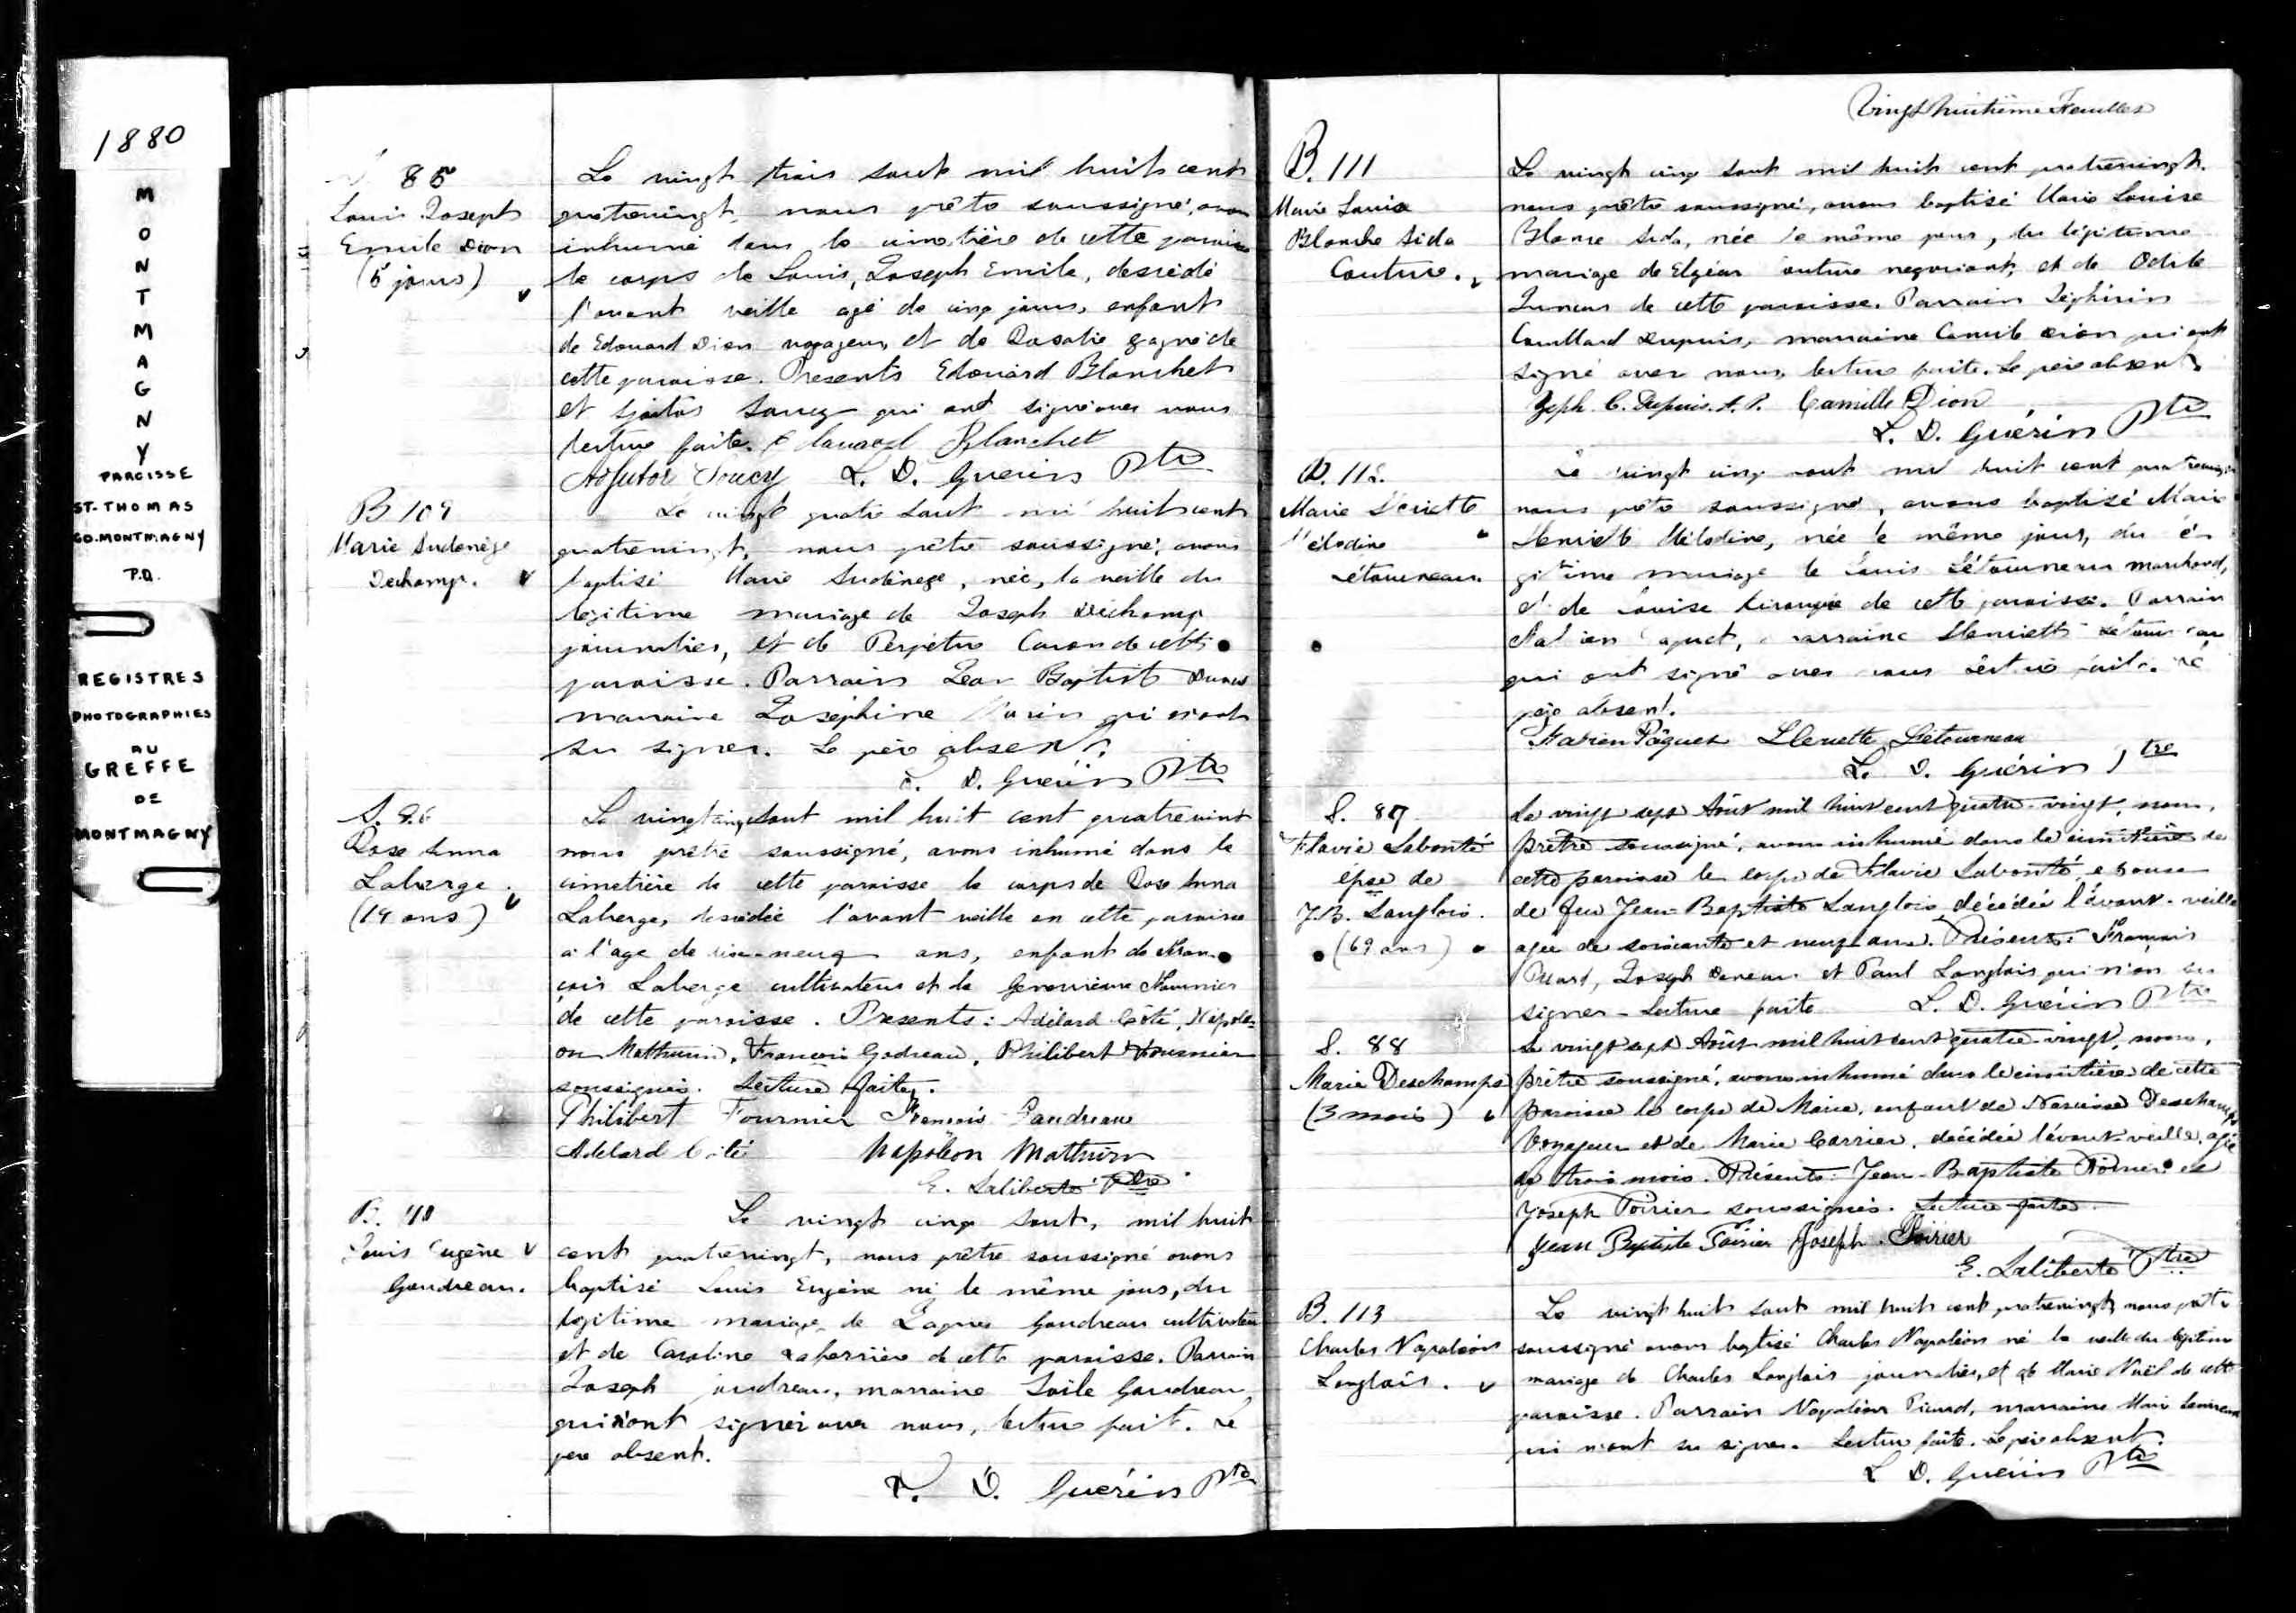 1880
MONTMAGNY
PAROISSE
ST-THOMAS
CO. MONTMAGNY
P.Q.
REGISTRES
PHOTOGRAPHIES
AU
GREFFE
DE
MONTMAGNY
85
Louis Joseph
Emile Dion
(5 jours)
Le vingt trois aout mil huit cent
quatrevingt, nous prêtre soussigné, avons
inhumé dans le cimetière de cette paroisse
le corps de Louis, Joseph Emile, decédé
l'avant veille agé de cinq jours, enfant
de Edouard Dion voyageur, et de Rosalie Gagné de
cette paroisse. Presents Edouard Blanchet
et Adjutor Soucy qui ont signé avec nous
lecture faite. Edouard Blanchet
Adjutor Soucy L. D. Guérin Ptre
B 109
Marie
Dechamp.
Le vingt quatre aout mil huit cent
quatrevingt, nous prêtre soussigné, avons
baptisé Marie, née, la veille du
legitime mariage de Joseph Dechamp
journalier, et de Perpétue Caron de cette
paroisse. Parrain Jean Baptiste
marraine Joséphine qui n'ont
su signer. Le père absent.
L. D. Guérin Ptre
S. 86
Rose Anna
Laberge.
(19 ans)
Le vingt cinq aout mil huit cent quatrevint
nous prêtre soussigné, avons inhumé dans le
cimetière de cette paroisse le corps de Rose Anna
Laberge, decédée l'avant veille en cette paroisse
à l'age de dix-neuf ans, enfant de Fran-
çois Laberge cultivateur et de Genevieve Fournier
de cette paroisse. Presents: Adélard Côté, Napolé-
on Mathurin, François Godreau, Philibert Fournier
soussignés. Lecture faite.
Philibert Fournier François Gaudreau
Adelard Côté Napoléon Mathurin
E. Laliberté Ptre
B. 110
Louis Eugène
Gaudreau.
Le vingt cinq aout, mil huit
cent quatrevingt, nous prêtre soussigné avons
baptisé Louis Eugène né le même jour, du
legitime mariage de Gaudreau cultivateur
et de Caroline Laferrière de cette paroisse. Parrain
Joseph Gaudreau, marraine Gaudreau,
qui n'ont signer avec nous, lecture fait. Le
père absent.
L. D. Guérin Ptre
Vingt huitième Feuillet
B. 111
Marie Louise
Blanche Aida
Couture.
Le vingt cinq aout mil huit cent quatrevingt.
nous prêtre soussigné, avons baptisé Marie Louise
Blanche Aida, née le même jour, du légitime
mariage de Elgéar Couture negociant, et de Odile
de cette paroisse. Parrain Zéphirin
Couillard Dupuis, marraine Camille Dion qui ont
signé avec nous, lecture faite. Le père absent.
Zeph. C. Dupuis. N. P. Camille Dion
L. D. Guérin Ptre
B. 112.
Marie Henriette
Mélodine
Létourneau.
Le vingt cinq aout mil huit cent quatrevingt
nous prêtre soussigné, avons baptisé Marie
Henriette Mélodine, née le même jour, du lé-
gitime mariage de Louis Létourneau marchand,
et de Louise de cette paroisse. Parrain
Fabien Paquet, marraine Henriette Létourneau
qui ont signé avec nous lecture faite. Le
père absent.
Fabien Pâquet Henriette Létourneau
L. D. Guérin Ptre
S. 87
Flavie Labonté
épse de
J.B. Langlois.
(69 ans)
Le vingt sept Août mil huit cent quatre-vingt, nous,
prêtre soussigné, avons inhumé dans le cimetière de
cette paroisse le corps de Flavie Labonté, epouse
de feu Jean-Baptiste Langlois, décédée l'avant-veille
agée de soixante et neuf ans. Présents: François
Joseph et Paul Langlois qui n'ont su
signer - Lecture faite L. D. Guérin Ptre
S. 88
Marie Deschamps
(3 mois)
Le vingt sept Août mil huit cent quatre-vingt, nous,
prêtre soussigné, avons inhumé dans le cimetière de cette
paroisse le corps de Marie, enfant de Narcisse Deschamps
Voyageur et de Marie Carrier, décédée l'avant-veille, agée
de trois mois. Présents: Jean-Baptiste Poirier et
Joseph Poirier soussignés. Lecture faite.
Jean Baptiste Poirier Joseph Poirier
E. Laliberté Ptre
B. 113
Charles Napoléon
Langlois.
Le vingt huit aout mil huit cent quatrevingt, nous prêtre
soussigné avons baptisé Charles Napoléon né la veille du légitime
mariage de Charles Langlois journalier, et de Marie Noël de cette
paroisse. Parrain Napoléon Picard, marraine Marie
qui n'ont su signer. Lecture faite. Le père absent.
L. D. Guérin Ptre